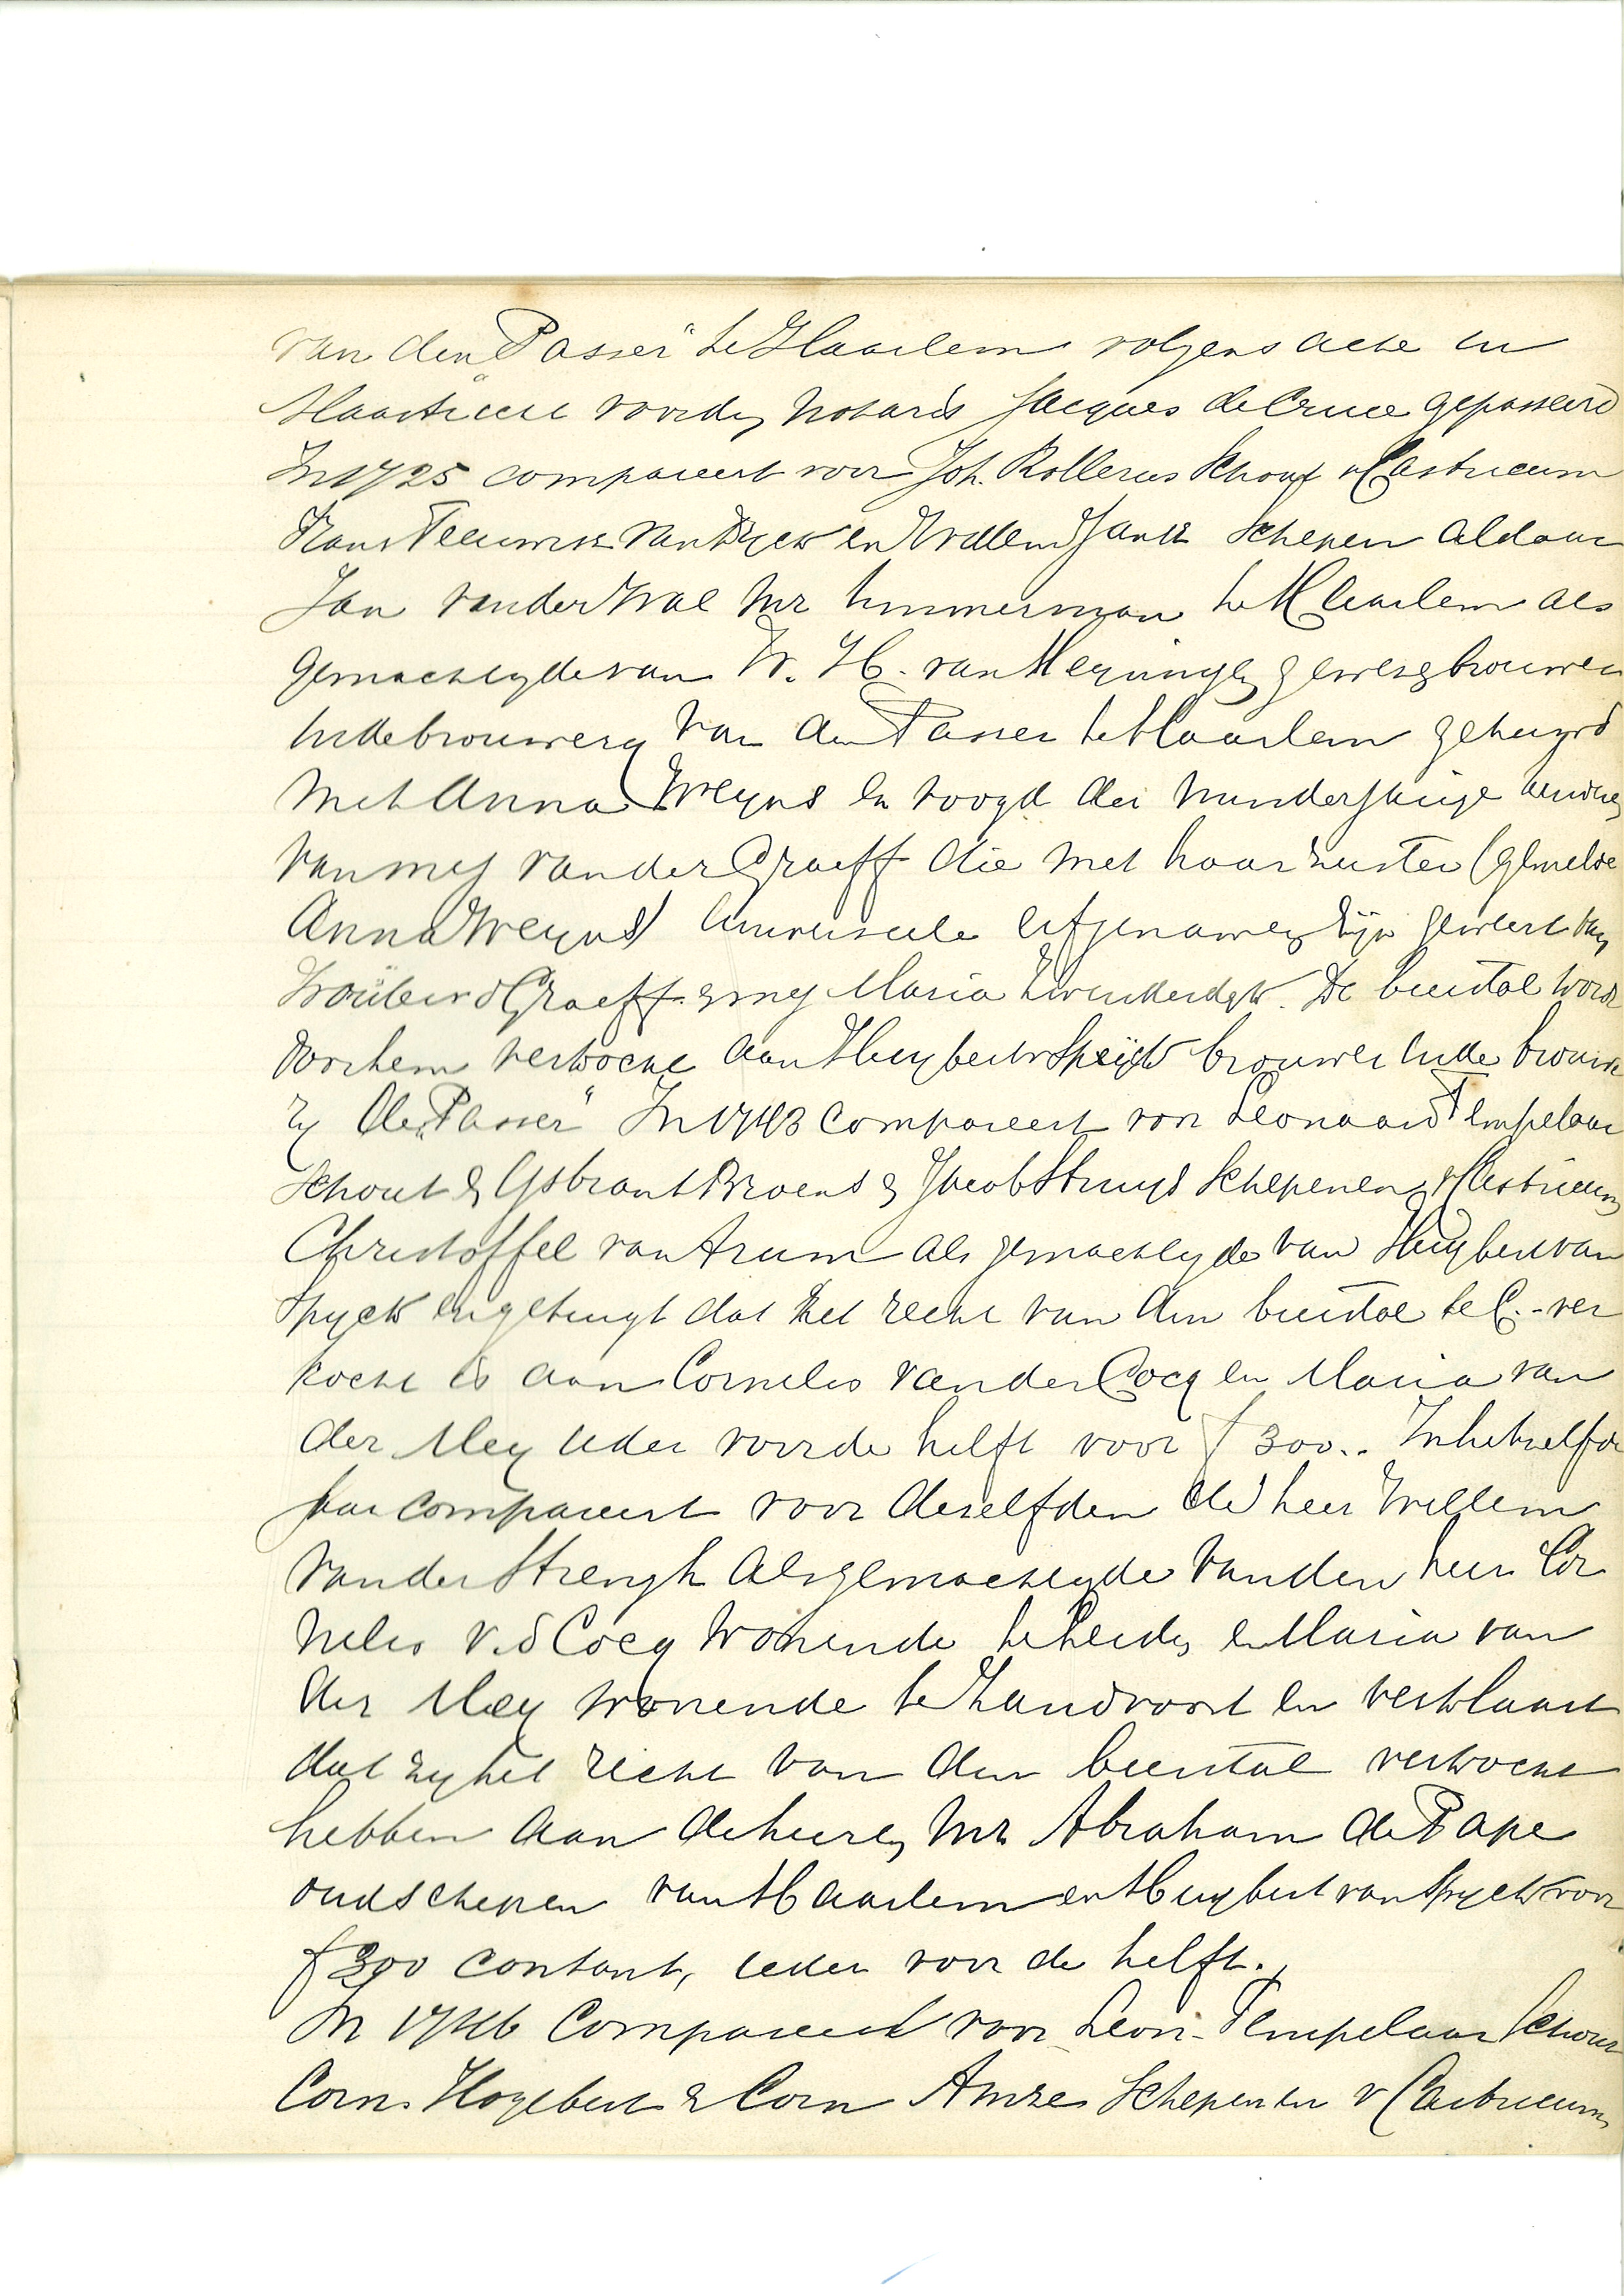 van den „Passer" te Haarlem volgens acte in
Maastricht voorden notaris Jacques de Cruce gepasseerd
In 1725 compareert voor Joh. Rollerus Schout v Castricum
Frans Teeuwisz van Dyck en Willem Jansz Schepen aldaar
Jan van der Wal Mr timmerman te Haarlem als
gemachtigde van W. H. van Heyningen gewesen brouwer
in de brouwery van den Passer te Haarlem gehuwd
met Anna Weyns en voogd der minderjarige
van mej van der Graeff die met haar zuster (gemelde
Anna Weyns) universeele erfgenamen zijn geweest van
Wouter v d Graeff en mej Maria Zwenkerdyk. De biertol word
door hem verkocht aan Huybert v Speijk brouwer in de brouwe
ry de „Passer" In 1743 compareert voor Leonaard Tempelaar
Schout & Ysbrant Broens & Jacob Stuyt Schepenen v Castricum
Christoffel van Arum als gemachtigde van Huybert van
Spyck en getuigt dat het recht van den biertol te C. ver
kocht is aan Cornelis van der Cocq en Maria van
der Mey ieder voor de helft voor f 300.. In hetzelfde
jaar compareert voor deselfden de heer Willem
van der Strengh als gemachtigde van den heer Cor
nelis v. d Cocq wonende te Leiden en Maria van
der Mey wonende te Zandvoort en verklaart
dat zy het recht van den biertol verkocht
hebben aan de heeren Mr Abraham de Pape
oudschepen van Haarlem en Huybert van Spyck voor
f 300 contant, ieder voor de helft.
In 1746 Compareert voor Leon. Tempelaar Schout
Corn. Hogebert & Corn Amze Schepenen v Castricum